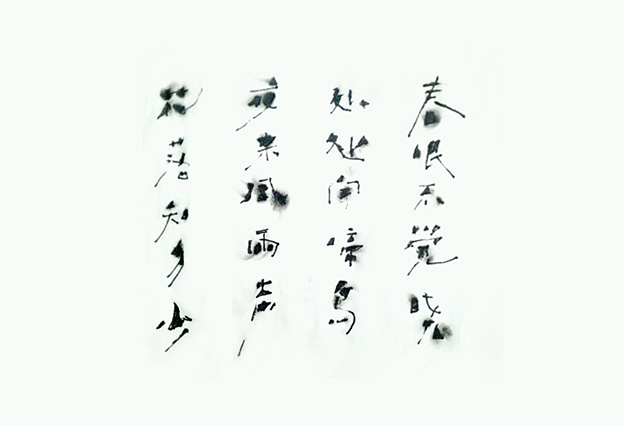 春眠不覺晓
处处闻啼鸟
夜来风雨声
花落知多少